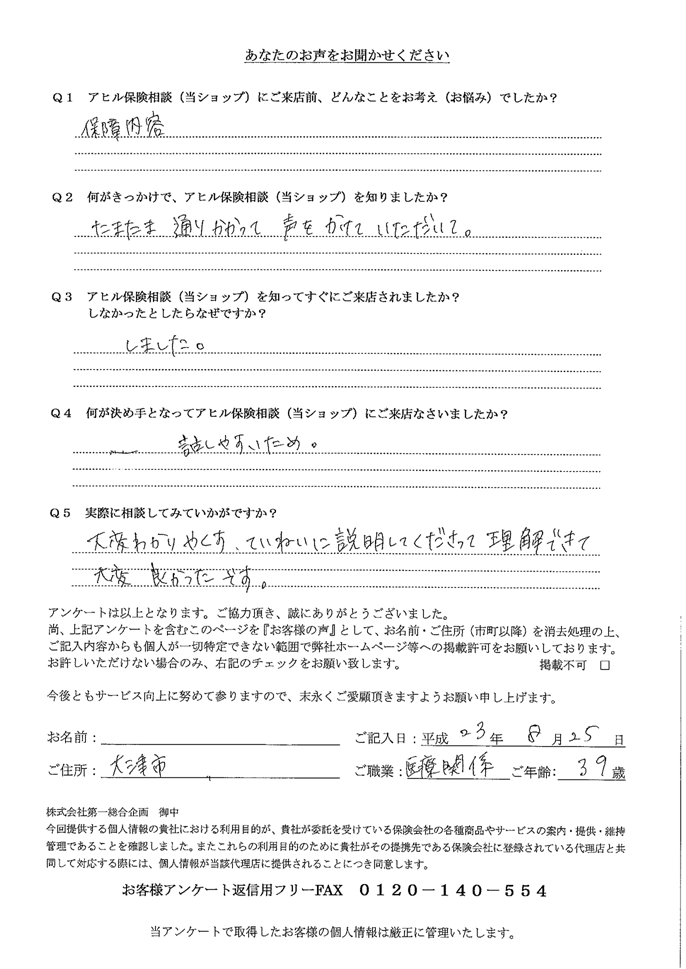 あなたのお声をお聞かせください
Q1 アヒル保険相談（当ショップ）にご来店前、どんなことをお考え（お悩み）でしたか？
保障内容
Q2 何がきっかけで、アヒル保険相談（当ショップ）を知りましたか？
たまたま 通りかかって 声を かけて いただいて。
Q3 アヒル保険相談（当ショップ）を知ってすぐにご来店されましたか？
しなかったとしたらなぜですか？
しました。
Q4 何が決め手となってアヒル保険相談（当ショップ）にご来店なさいましたか？
話しやすいため。
Q5 実際に相談してみていかがですか？
大変わかりやくす、ていねいに説明してくださって 理解できて
大変 良かったです。
アンケートは以上となります。ご協力頂き、誠にありがとうございました。
尚、上記アンケートを含むこのページを『お客様の声』として、お名前・ご住所（市町以降）を消去処理の上、
ご記入内容からも個人が一切特定できない範囲で弊社ホームページ等への掲載許可をお願いしております。
お許しいただけない場合のみ、右記のチェックをお願い致します。 掲載不可 □
今後ともサービス向上に努めて参りますので、末永くご愛顧頂きますようお願い申し上げます。
お名前： ご記入日：平成 23 年 8 月 25 日
ご住所： 大津市 ご職業：医療関係 ご年齢： 39 歳
株式会社第一総合企画 御中
今回提供する個人情報の貴社における利用目的が、貴社が委託を受けている保険会社の各種商品やサービスの案内・提供・維持
管理であることを確認しました。またこれらの利用目的のために貴社がその提携先である保険会社に登録されている代理店と共
同して対応する際には、個人情報が当該代理店に提供されることにつき同意します。
お客様アンケート返信用フリーFAX 0120－140－554
当アンケートで取得したお客様の個人情報は厳正に管理いたします。